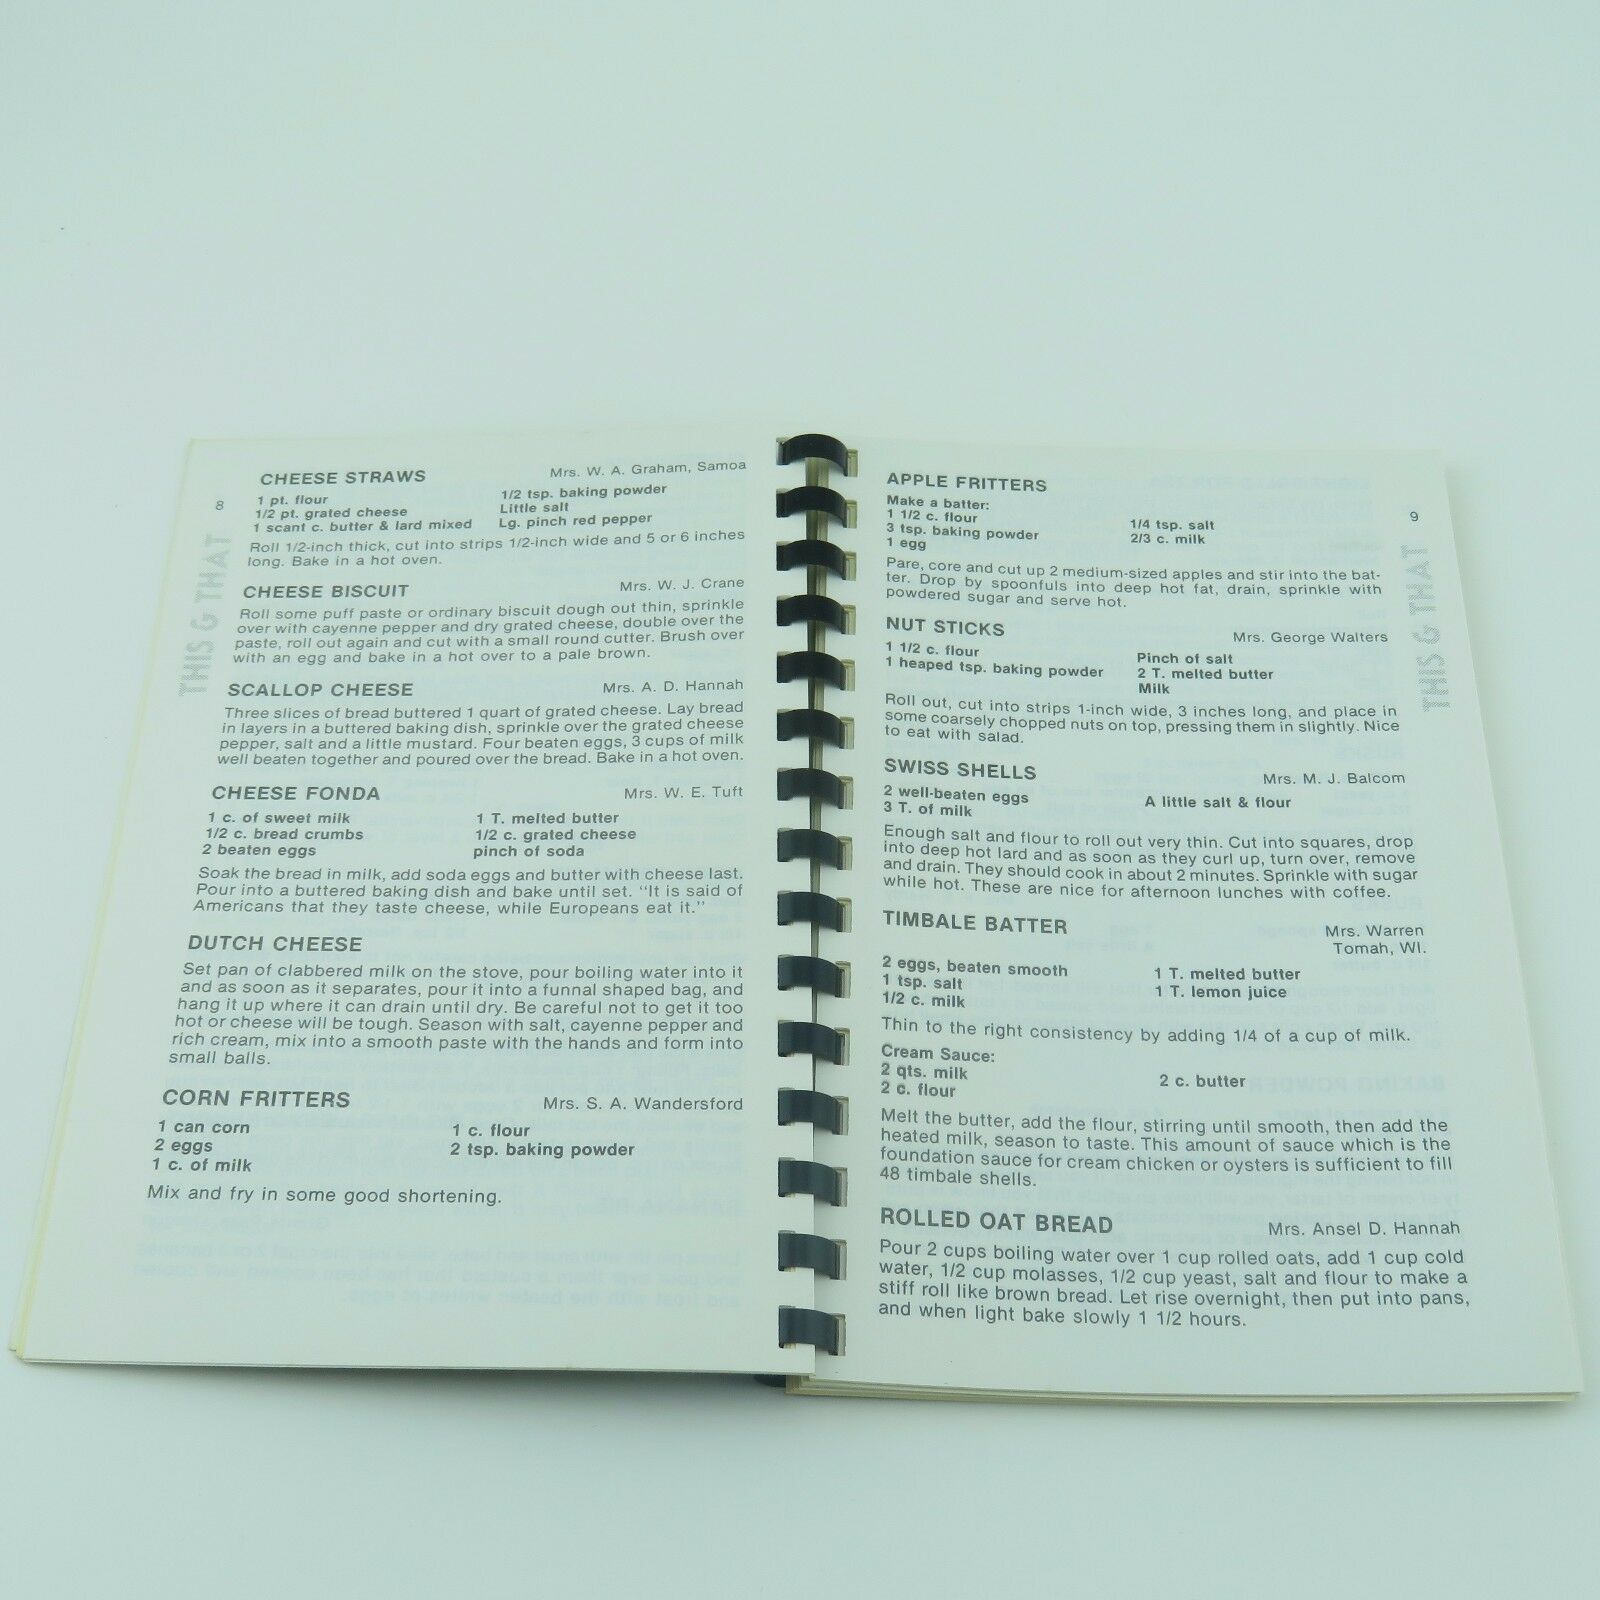 8
THIS & THAT
CHEESE STRAWS Mrs. W. A. Graham, Samoa
1 pt. flour 1/2 tsp. baking powder
1/2 pt. grated cheese Little salt
1 scant c. butter & lard mixed Lg. pinch red pepper
Roll 1/2-inch thick, cut into strips 1/2-inch wide and 5 or 6 inches
long. Bake in a hot oven.
CHEESE BISCUIT Mrs. W. J. Crane
Roll some puff paste or ordinary biscuit dough out thin, sprinkle
over with cayenne pepper and dry grated cheese, double over the
paste, roll out again and cut with a small round cutter. Brush over
with an egg and bake in a hot over to a pale brown.
SCALLOP CHEESE Mrs. A. D. Hannah
Three slices of bread buttered 1 quart of grated cheese. Lay bread
in layers in a buttered baking dish, sprinkle over the grated cheese
pepper, salt and a little mustard. Four beaten eggs, 3 cups of milk
well beaten together and poured over the bread. Bake in a hot oven.
CHEESE FONDA Mrs. W. E. Tuft
1 c. of sweet milk 1 T. melted butter
1/2 c. bread crumbs 1/2 c. grated cheese
2 beaten eggs pinch of soda
Soak the bread in milk, add soda eggs and butter with cheese last.
Pour into a buttered baking dish and bake until set. “It is said of
Americans that they taste cheese, while Europeans eat it.”
DUTCH CHEESE
Set pan of clabbered milk on the stove, pour boiling water into it
and as soon as it separates, pour it into a funnal shaped bag, and
hang it up where it can drain until dry. Be careful not to get it too
hot or cheese will be tough. Season with salt, cayenne pepper and
rich cream, mix into a smooth paste with the hands and form into
small balls.
CORN FRITTERS Mrs. S. A. Wandersford
1 can corn 1 c. flour
2 eggs 2 tsp. baking powder
1 c. of milk
Mix and fry in some good shortening.
9
THIS & THAT
APPLE FRITTERS
Make a batter:
1 1/2 c. flour 1/4 tsp. salt
3 tsp. baking powder 2/3 c. milk
1 egg
Pare, core and cut up 2 medium-sized apples and stir into the bat-
ter. Drop by spoonfuls into deep hot fat, drain, sprinkle with
powdered sugar and serve hot.
NUT STICKS Mrs. George Walters
1 1/2 c. flour Pinch of salt
1 heaped tsp. baking powder 2 T. melted butter
Milk
Roll out, cut into strips 1-inch wide, 3 inches long, and place in
some coarsely chopped nuts on top, pressing them in slightly. Nice
to eat with salad.
SWISS SHELLS Mrs. M. J. Balcom
2 well-beaten eggs A little salt & flour
3 T. of milk
Enough salt and flour to roll out very thin. Cut into squares, drop
into deep hot lard and as soon as they curl up, turn over, remove
and drain. They should cook in about 2 minutes. Sprinkle with sugar
while hot. These are nice for afternoon lunches with coffee.
TIMBALE BATTER Mrs. Warren
Tomah, WI.
2 eggs, beaten smooth 1 T. melted butter
1 tsp. salt 1 T. lemon juice
1/2 c. milk
Thin to the right consistency by adding 1/4 of a cup of milk.
Cream Sauce:
2 qts. milk 2 c. butter
2 c. flour
Melt the butter, add the flour, stirring until smooth, then add the
heated milk, season to taste. This amount of sauce which is the
foundation sauce for cream chicken or oysters is sufficient to fill
48 timbale shells.
ROLLED OAT BREAD Mrs. Ansel D. Hannah
Pour 2 cups boiling water over 1 cup rolled oats, add 1 cup cold
water, 1/2 cup molasses, 1/2 cup yeast, salt and flour to make a
stiff roll like brown bread. Let rise overnight, then put into pans,
and when light bake slowly 1 1/2 hours.